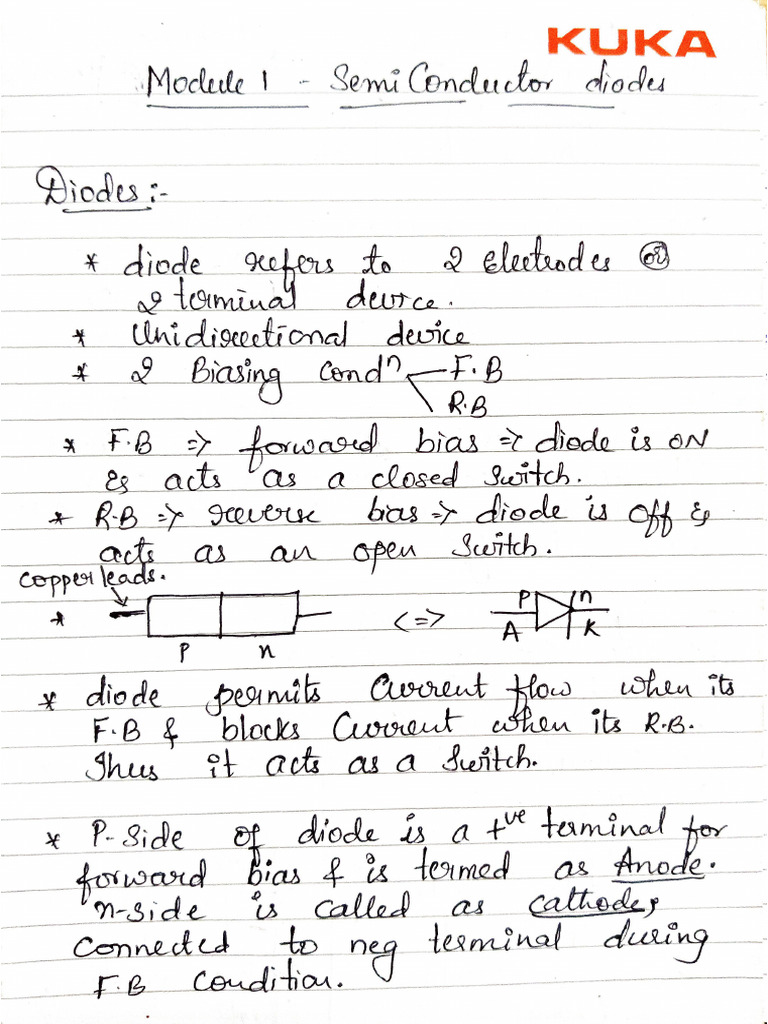 KUKA
Module 1 - SemiConductor diodes
Diodes :-
* diode refers to 2 Electrodes or
2 terminal device.
* Unidirectional device
* 2 Biasing Condⁿ F.B
R.B
* F.B => forward bias => diode is ON
& acts as a closed switch.
* R.B => reverse bias => diode is off &
acts as an open switch.
copper leads.
* p n <=> P n A K
* diode permits Current flow when its
F.B & blocks Current when its R.B.
Thus it acts as a switch.
* P-side of diode is a +ve terminal for
forward bias & is termed as Anode.
n-side is called as cathode,
Connected to neg terminal during
F.B Condition.